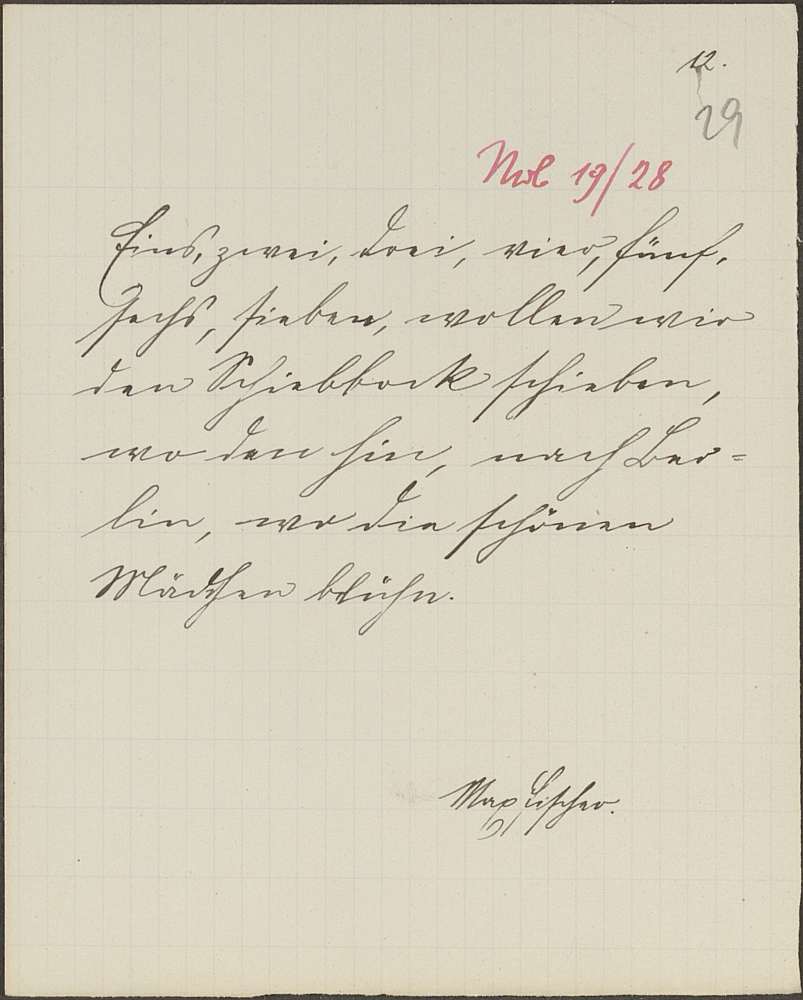 12.
29
Mob 19/28
Eins, zwei, drei, vier, fünf,
sechs, sieben, wollen wir
den Schiebbock schieben,
wo den hin, nach Ber=
lin, wo die schönen
Mädchen blühn.
Max Fischer.